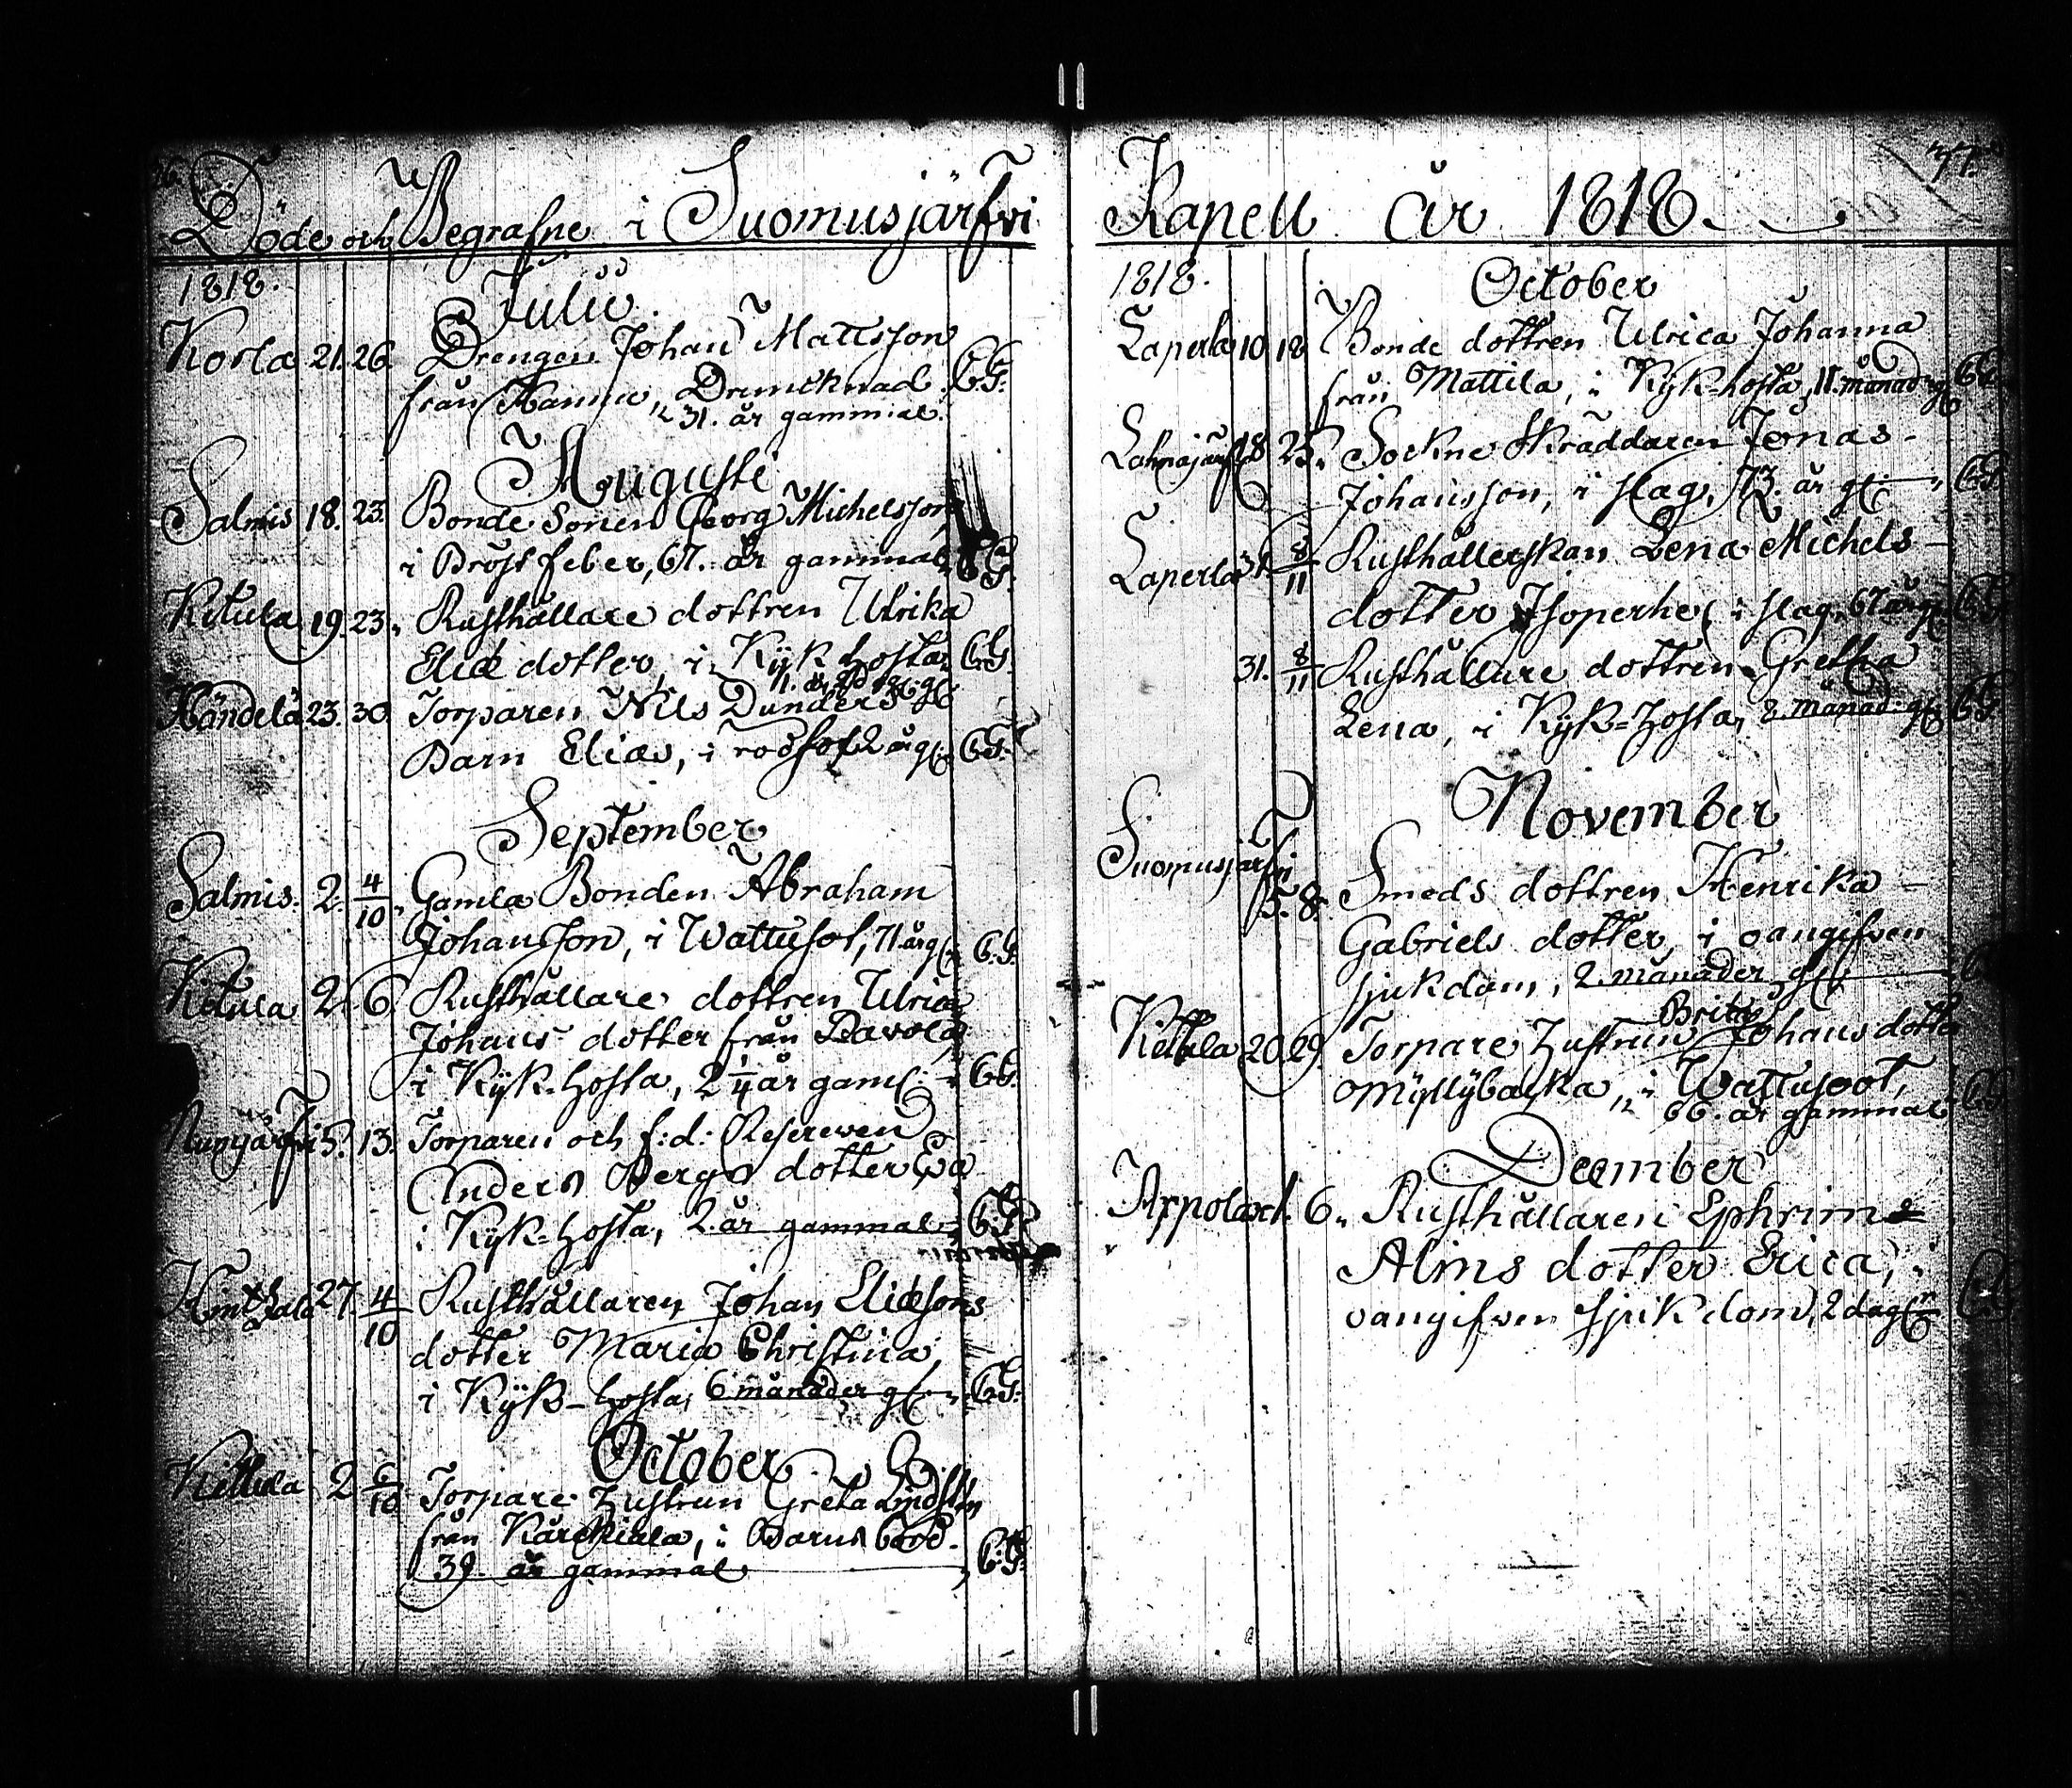 Döde och Begrafne i Suomusjärfvi
1818.
Julii
Korla 21. 26. Drengen Johan Mattsson
från Hannu, Drunknad B.G.
31. år gammal.
Augusti
Salmis 18. 23. Bonde Sonen Georg Michelsson
i Bröst feber, 67. år gammal, B.G.
Kitula 19. 23. Rusthållare dottren Ulrika
Eliæ dotter, i Kijk hosta B.G.
Händelä 23. 30. Torparen Nils Dunders
Barn Elias, i rödsot 2 år gl. B.G.
September
Salmis. 2. 4/10 Gamla Bonden Abraham
Johansson, i Wattusot, 71 år gl. B.G.
Kitula 2. 6. Rusthållare dottren Ulrica
Johans dotter från Pavola
i Kijk-hosta, 2 1/4 år gaml: B.G.
5. 13. Torparen och f:d: Reserven
Anders Bergs dotter Eva
i Kijk-hosta, 2. år gammal, B.G.
27. 4/10 Rusthållaren Johan Eliæsons
dotter Maria Christina,
i Kijk-hosta, 6 månader gl. B.G.
October
Kittula 2 6/10 Torpare hustrun Greta Lindsten
från Kärckiala, i Barns börd.
39. år gammal B.G.
Kapell år 1818.
77.
1818.
October
Laperla 10 18 Bonde dottren Ulrica Johanna
från Mattila, i Kijk-hosta, 11. månad. gl. B.G.
Lahnajärfvi 18 25. Sockne Skräddaren Jonas
Johansson, i slag, 73. år gl. B.G.
Laperla 31. 8/11 Rusthållerskan Lena Michels
dotter Isoperhe, i slag, 67 år gl. B.G.
31. 8/11 Rusthållare dottren Gretha
Lena, i Kijk-hosta, 2. månad. gl. B.G.
November
Suomusjärfvi
5. 8. Smeds dottren Henrika
Gabriels dotter, i oangifven
sjukdom, 2. månader gl.
Brita
Kittula 20. 29. Torpare hustrun Johans dotter
Myllybacka, i Wattusot,
66. år gammal
December
Arpola 1. 6. Rusthållaren Ephrim
Alms dotter Erica, i
oangifven sjukdom, 2 dag.